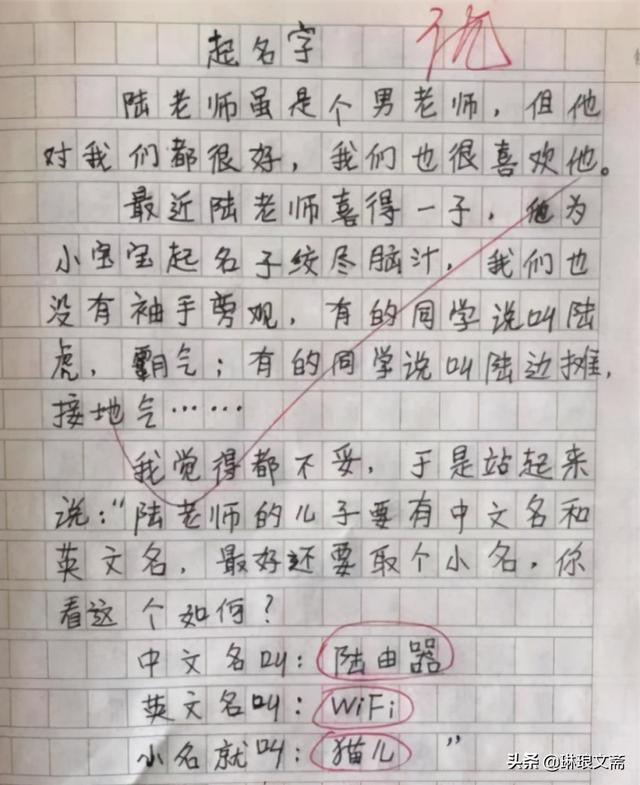 起名字
优
陆老师虽是个男老师，但他
对我们都很好，我们也很喜欢他。
最近陆老师喜得一子，他为
小宝宝起名子绞尽脑汁，我们也
没有袖手旁观，有的同学说叫陆
虎，霸气；有的同学说叫陆边摊，
接地气……
我觉得都不妥，于是站起来
说：“陆老师的儿子要有中文名和
英文名，最好还要取个小名，你
看这个如何？
中文名叫：陆由器
英文名叫：WiFi
小名就叫：猫儿”
头条@琳琅文斋